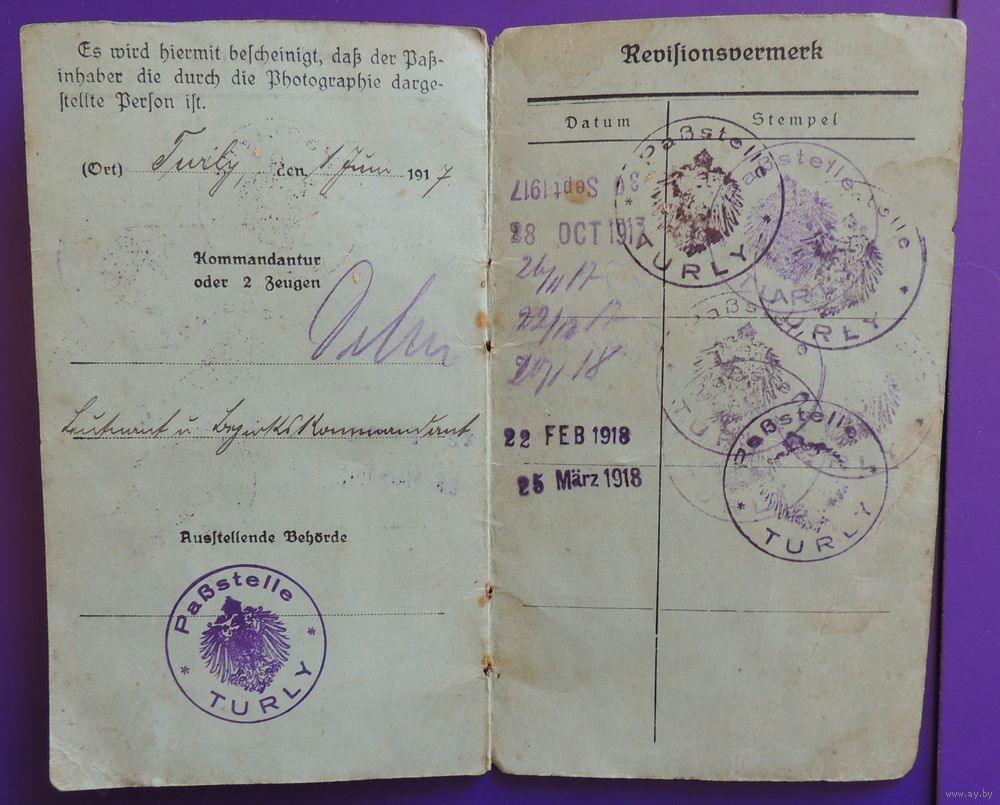 Es wird hiermit bescheinigt, daß der Paß-
inhaber die durch die Photographie darge-
stellte Person ist.
(Ort) Turly, den 1. Juni 1917
Kommandantur
oder 2 Zeugen
Leutnant u. Bezirkskommandant
Ausstellende Behörde
Paßstelle
* TURLY *
Revisionsvermerk
Datum Stempel
30 Sept 1917
28 OCT 1917
26/11 17
22/12 17
20/1 18
22 FEB 1918
25 März 1918
Paßstelle
* TURLY *
Paßstelle
TURLY *
Paßstelle
TURLY
Paßstelle
* TURLY *
www.ay.by